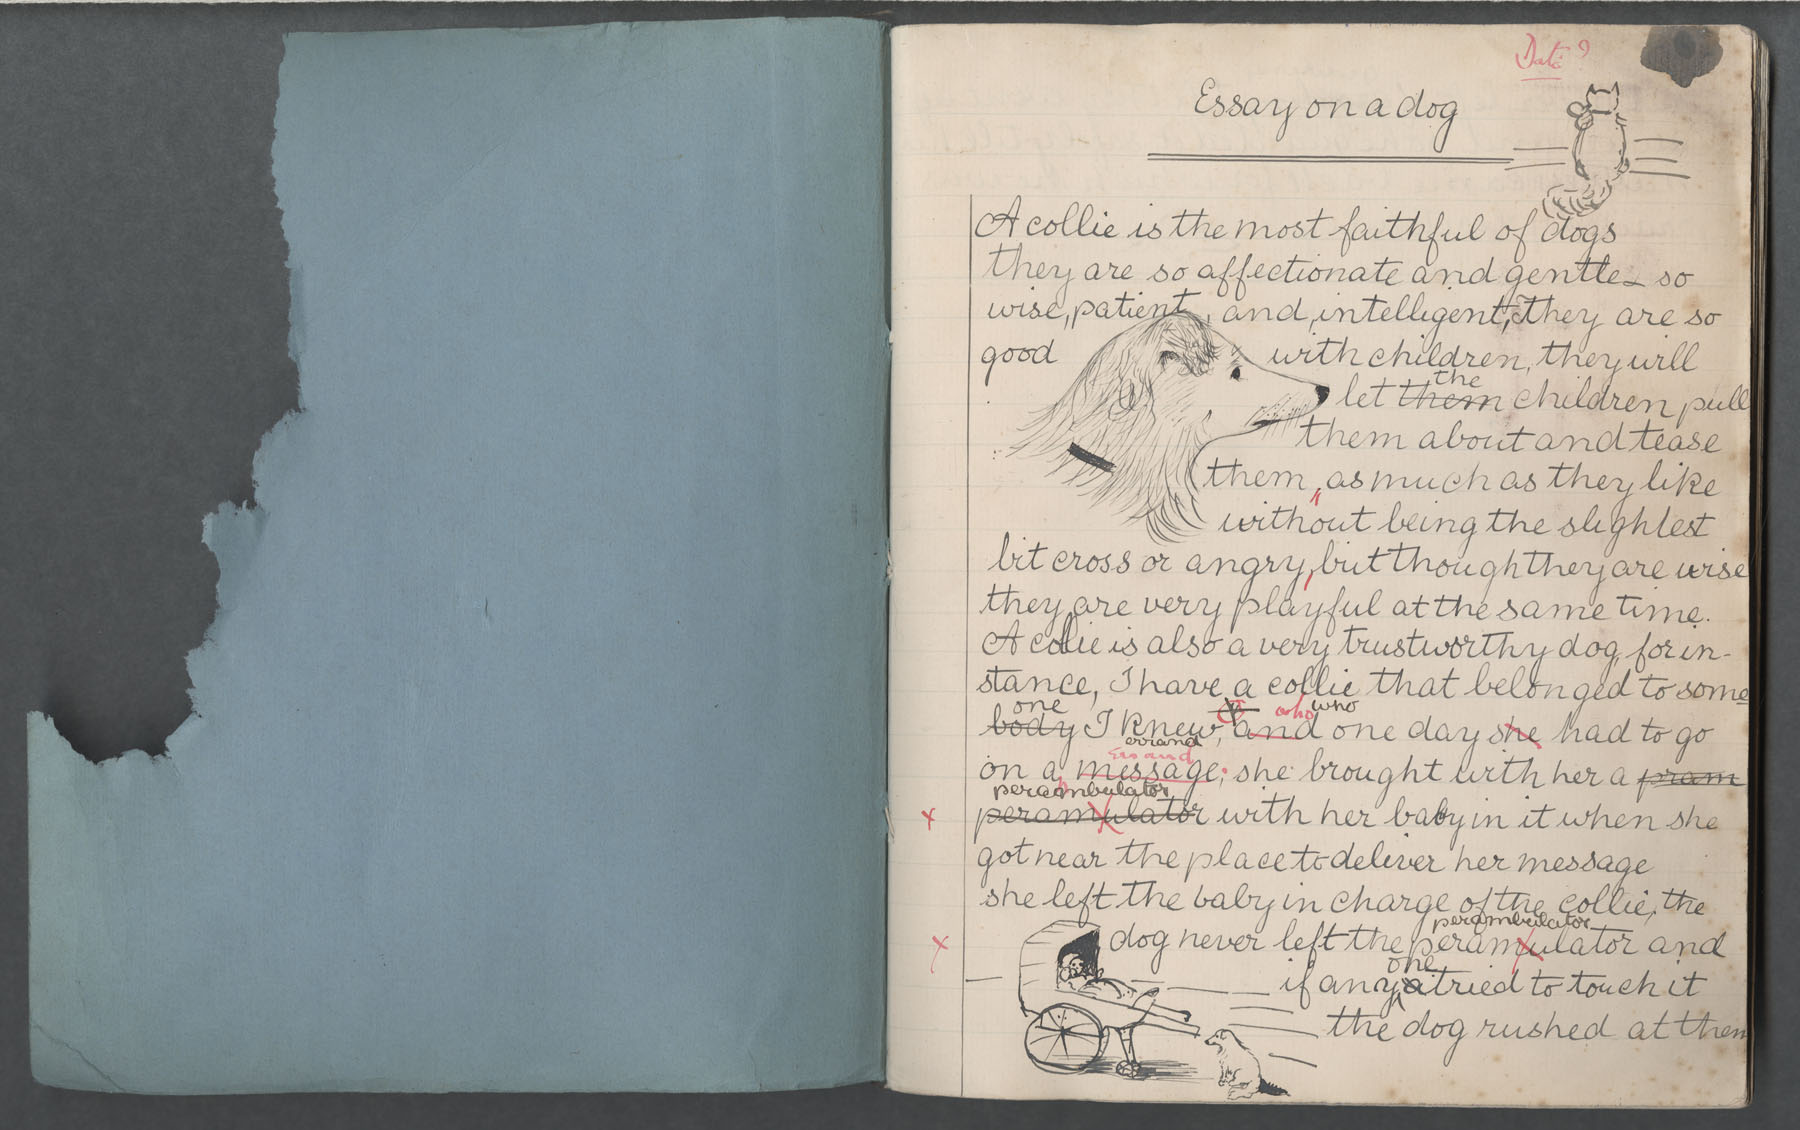 Date?
Essay on a dog
A collie is the most faithful of dogs
they are so affectionate and gentle so
wise, patient, and, intelligent, They are so
good with children, they will
the
let them children pull
them about and tease
them, as much as they like
without being the slightest
bit cross or angry, but though they are wise
they are very playful at the same time.
A collie is also a very trustworthy dog, for in-
stance, I have a collie that belonged to some
one who who
body I knew, and one day she had to go
errand
Errand
on a message; she brought with her a pram
perambulator
peramulator with her baby in it when she
got near the place to deliver her message
she left the baby in charge of the collie, the
perambulator
dog never left the peramulator and
one
if any tried to touch it
the dog rushed at them